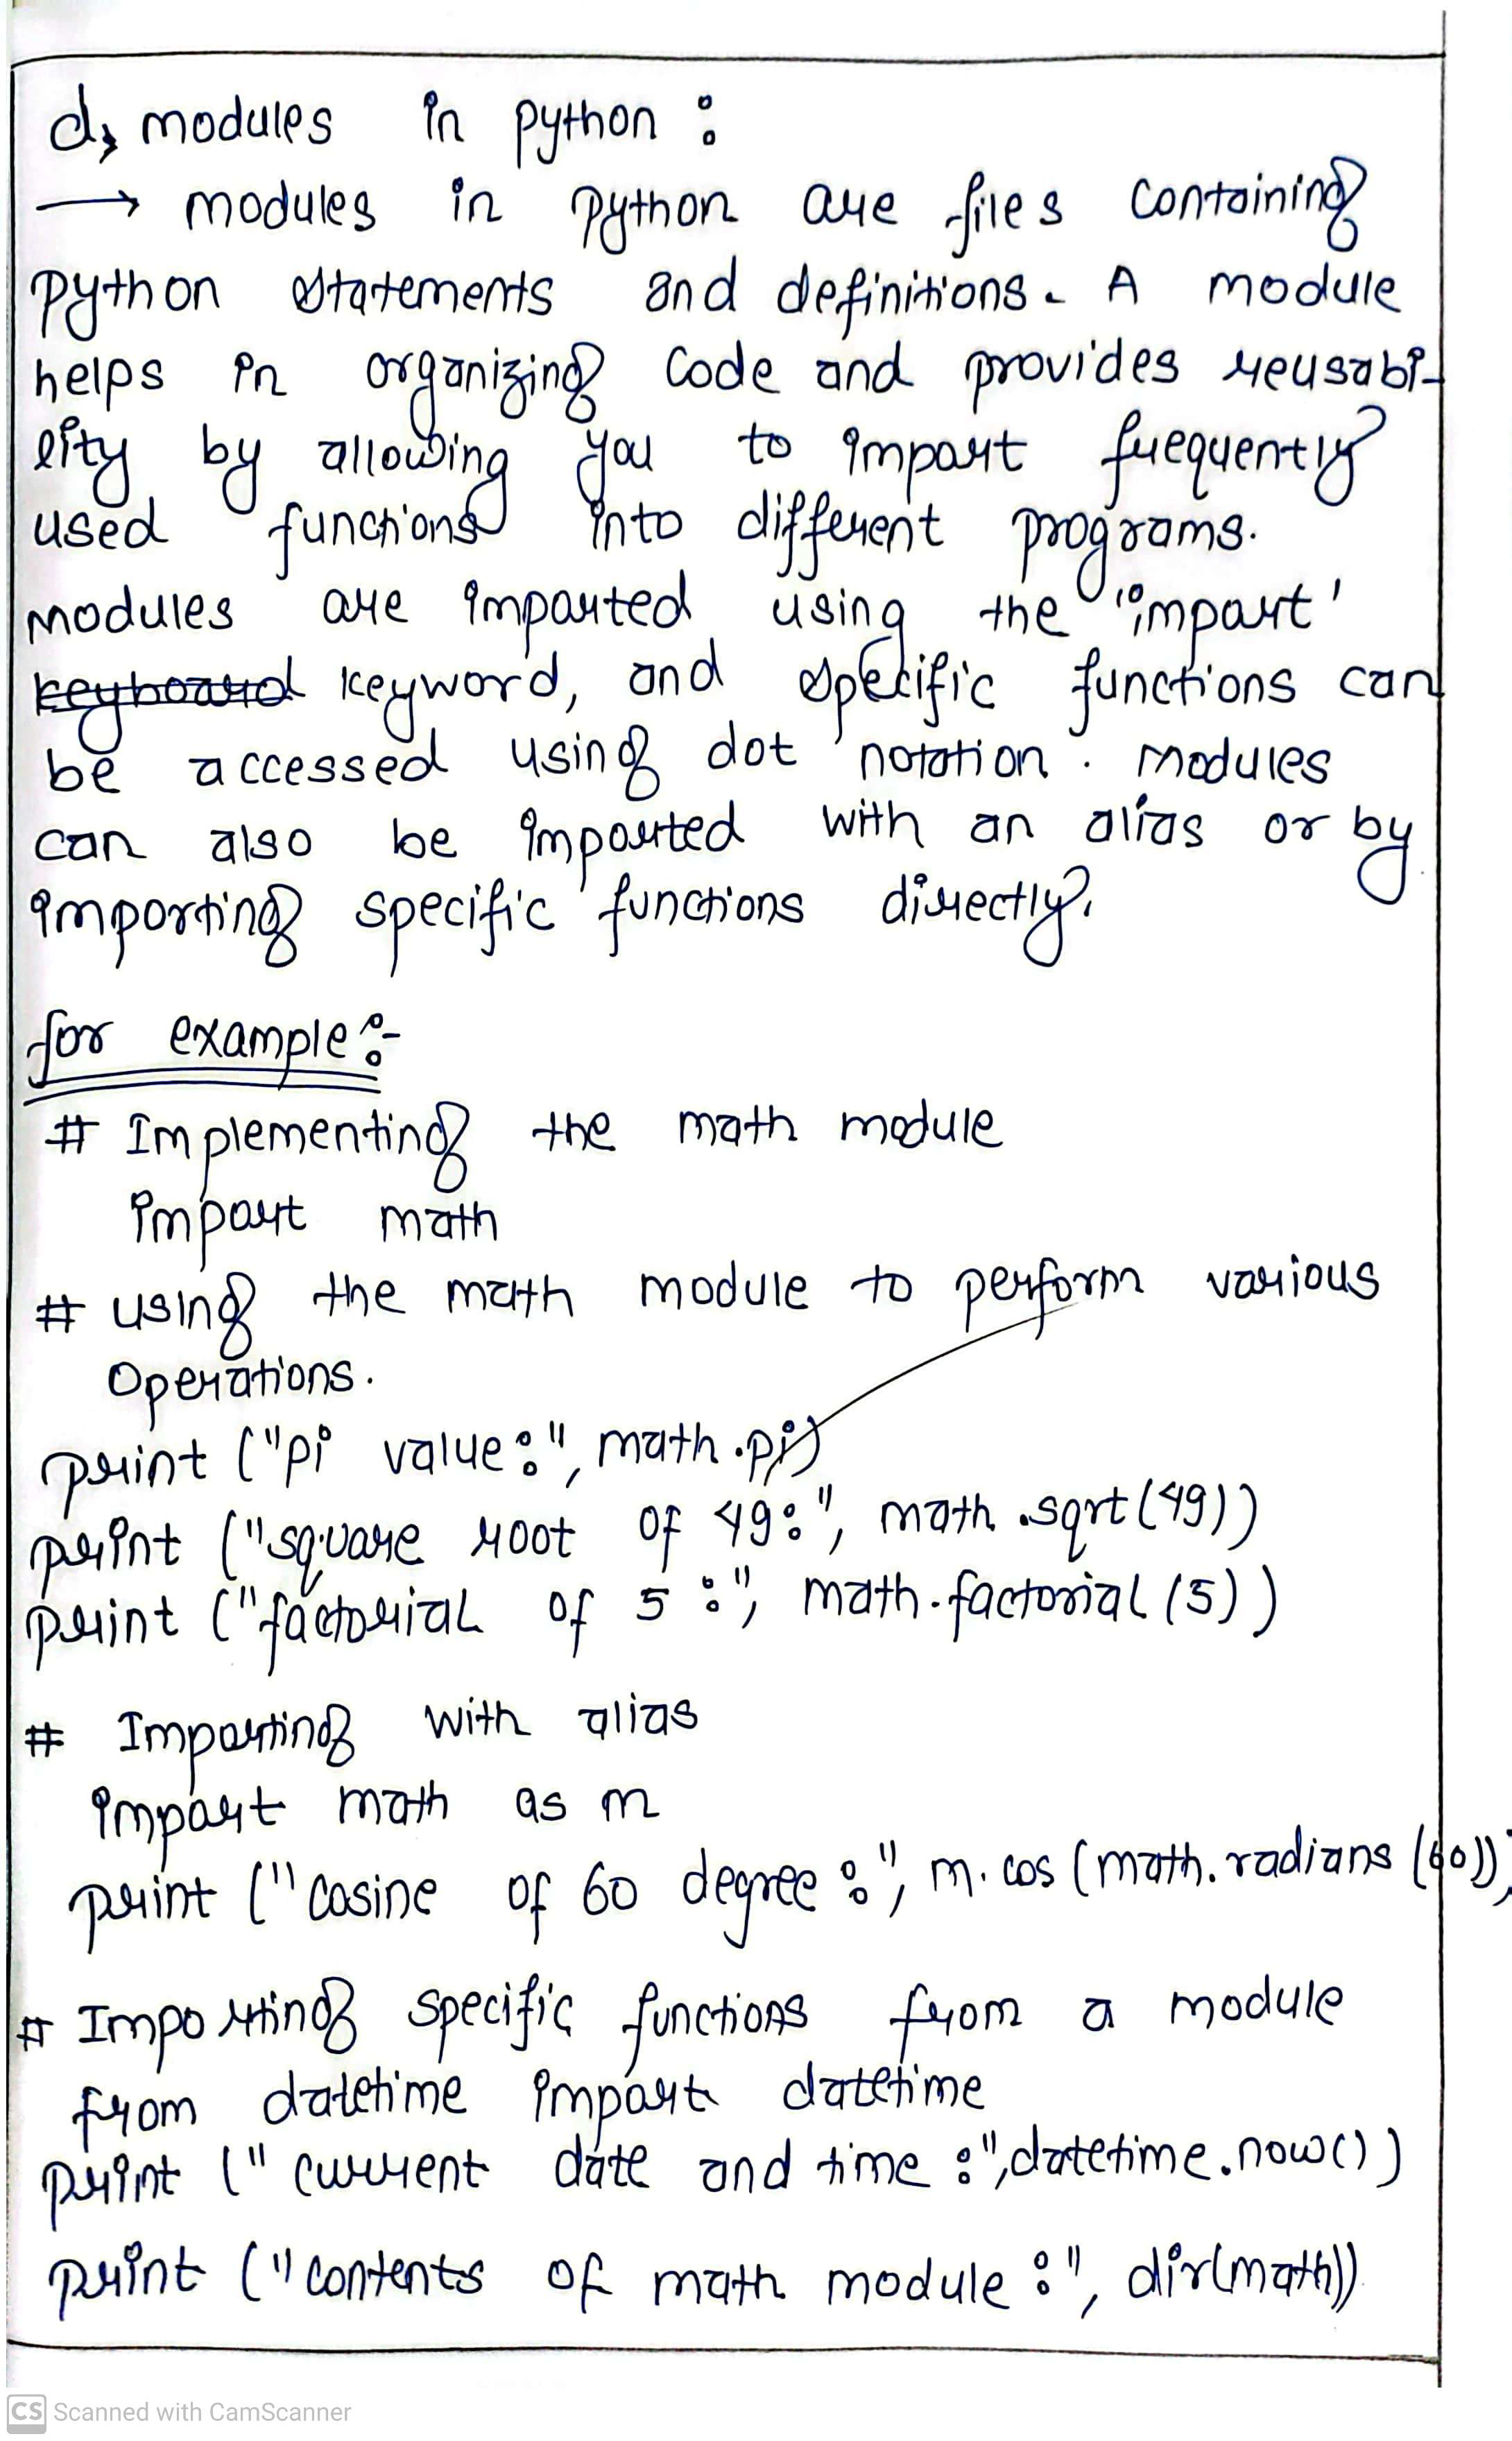 d, modules in python :
→ modules in python are files containing
python statements and definitions. A module
helps in organizing code and provides reusabi-
lity by allowing you to import frequently
used functions into different programs.
modules are imported using the 'import'
keyboard keyword, and specific functions can
be accessed using dot notation. modules
can also be imported with an alias or by
importing specific functions directly.
for example:-
# Implementing the math module
import math
# using the math module to perform various
operations.
print ("pi value:", math.pi)
print ("square root of 49:", math.sqrt(49))
print ("factorial of 5:", math.factorial(5))
# Importing with alias
import math as m
print ("cosine of 60 degree:", m.cos(math.radians(60)))
# Importing specific functions from a module
from datetime import datetime
print ("current date and time:", datetime.now())
print ("contents of math module:", dir(math))
CS Scanned with CamScanner